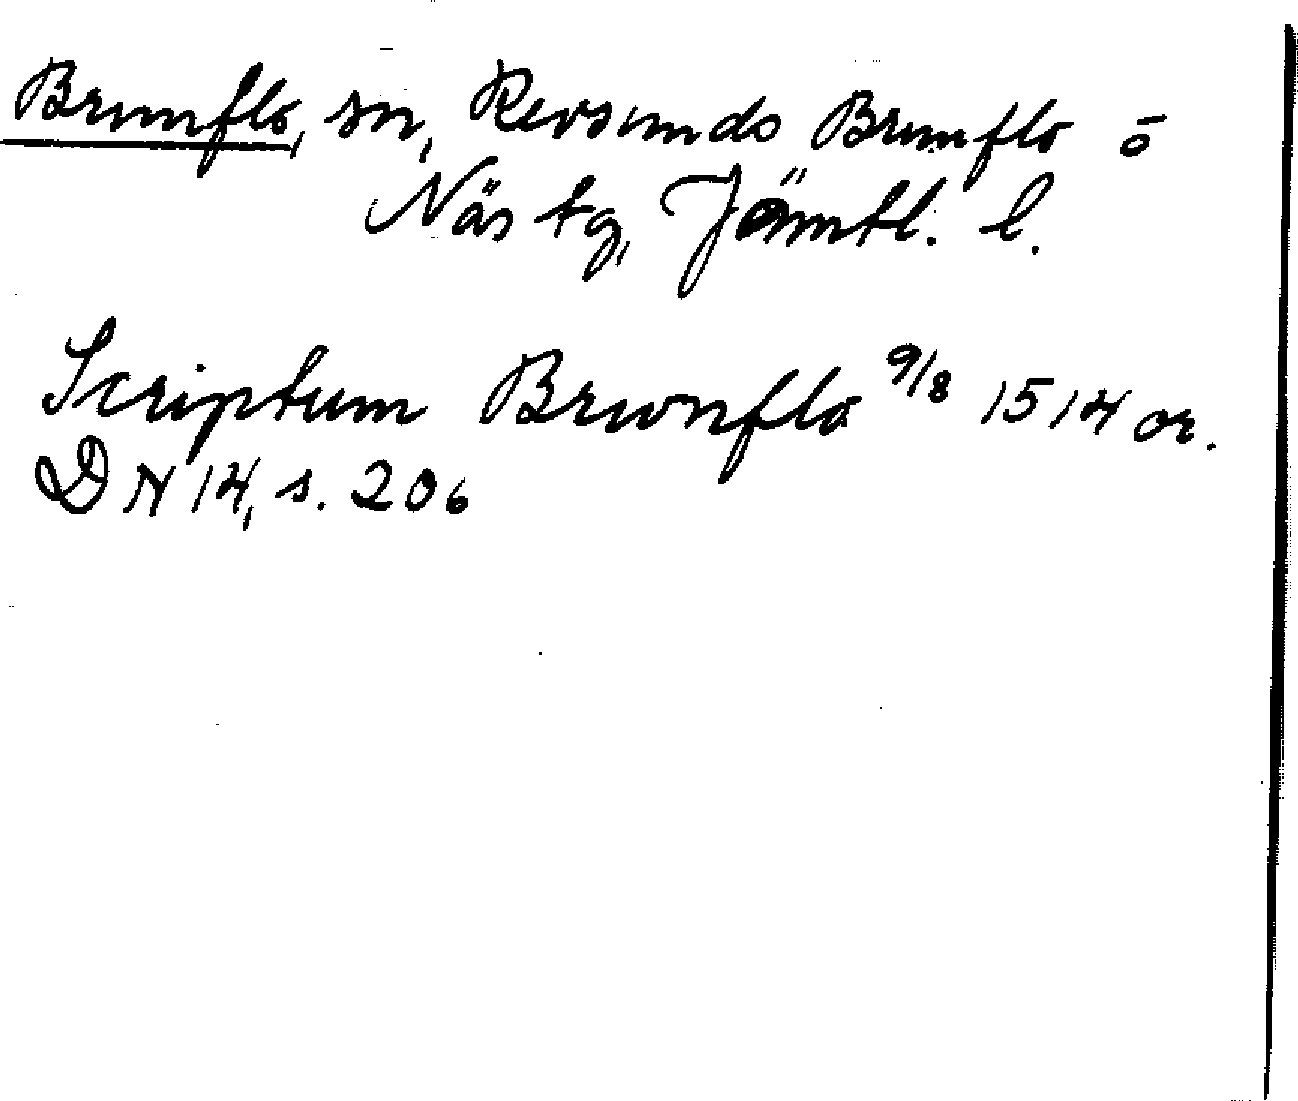 Brunflo, sn, Revsunds Brunflo o
Näs tg, Jämtl. l.
Scriptum Brwnflo 9/8 1514 or.
DN 14, s. 206